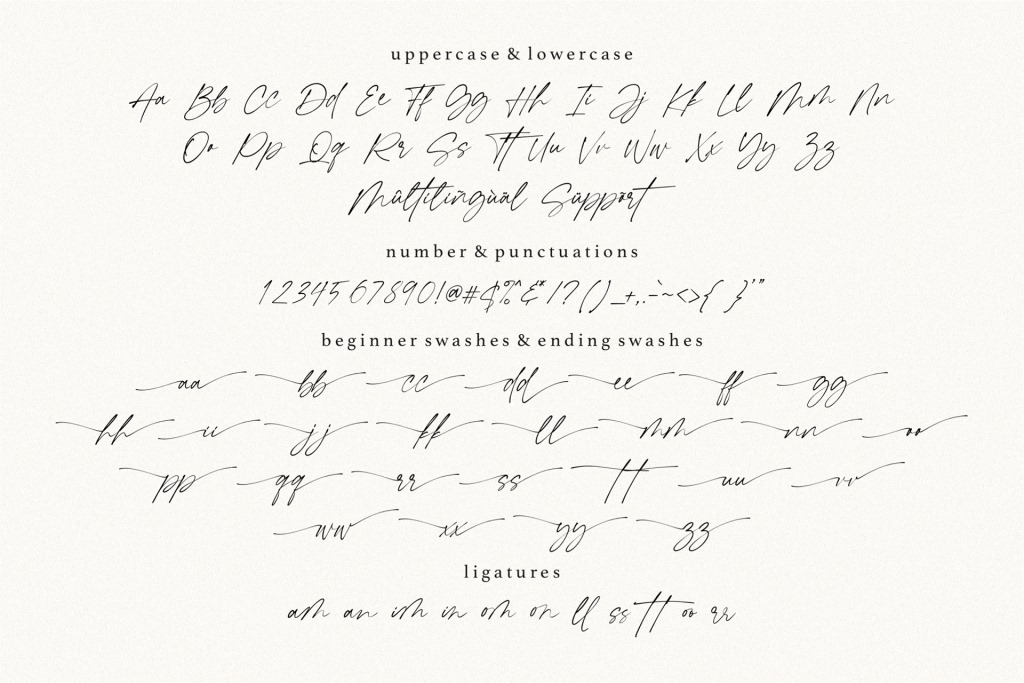 uppercase & lowercase
Aa Bb Cc Dd Ee Ff Gg Hh Ii Jj Kk Ll Mm Nn
Oo Pp Qq Rr Ss Tt Uu Vv Ww Xx Yy Zz
Múltilingùál Süppört
number & punctuations
1234567890!@#$%^&*/?()_+,.-`~<>{ }'"
beginner swashes & ending swashes
aa bb cc dd ee ff gg
hh ii jj kk ll mm nn oo
pp qq rr ss tt uu vv
ww xx yy zz
ligatures
am an im in om on ll ss tt oo rr